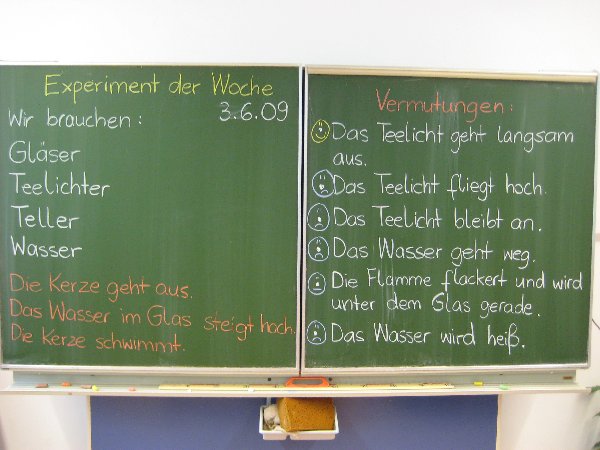 Experiment der Woche
3.6.09
Wir brauchen:
Gläser
Teelichter
Teller
Wasser
Die Kerze geht aus.
Das Wasser im Glas steigt hoch.
Die Kerze schwimmt.
Vermutungen:
Das Teelicht geht langsam
aus.
Das Teelicht fliegt hoch.
Das Teelicht bleibt an.
Das Wasser geht weg.
Die Flamme flackert und wird
unter dem Glas gerade.
Das Wasser wird heiß.